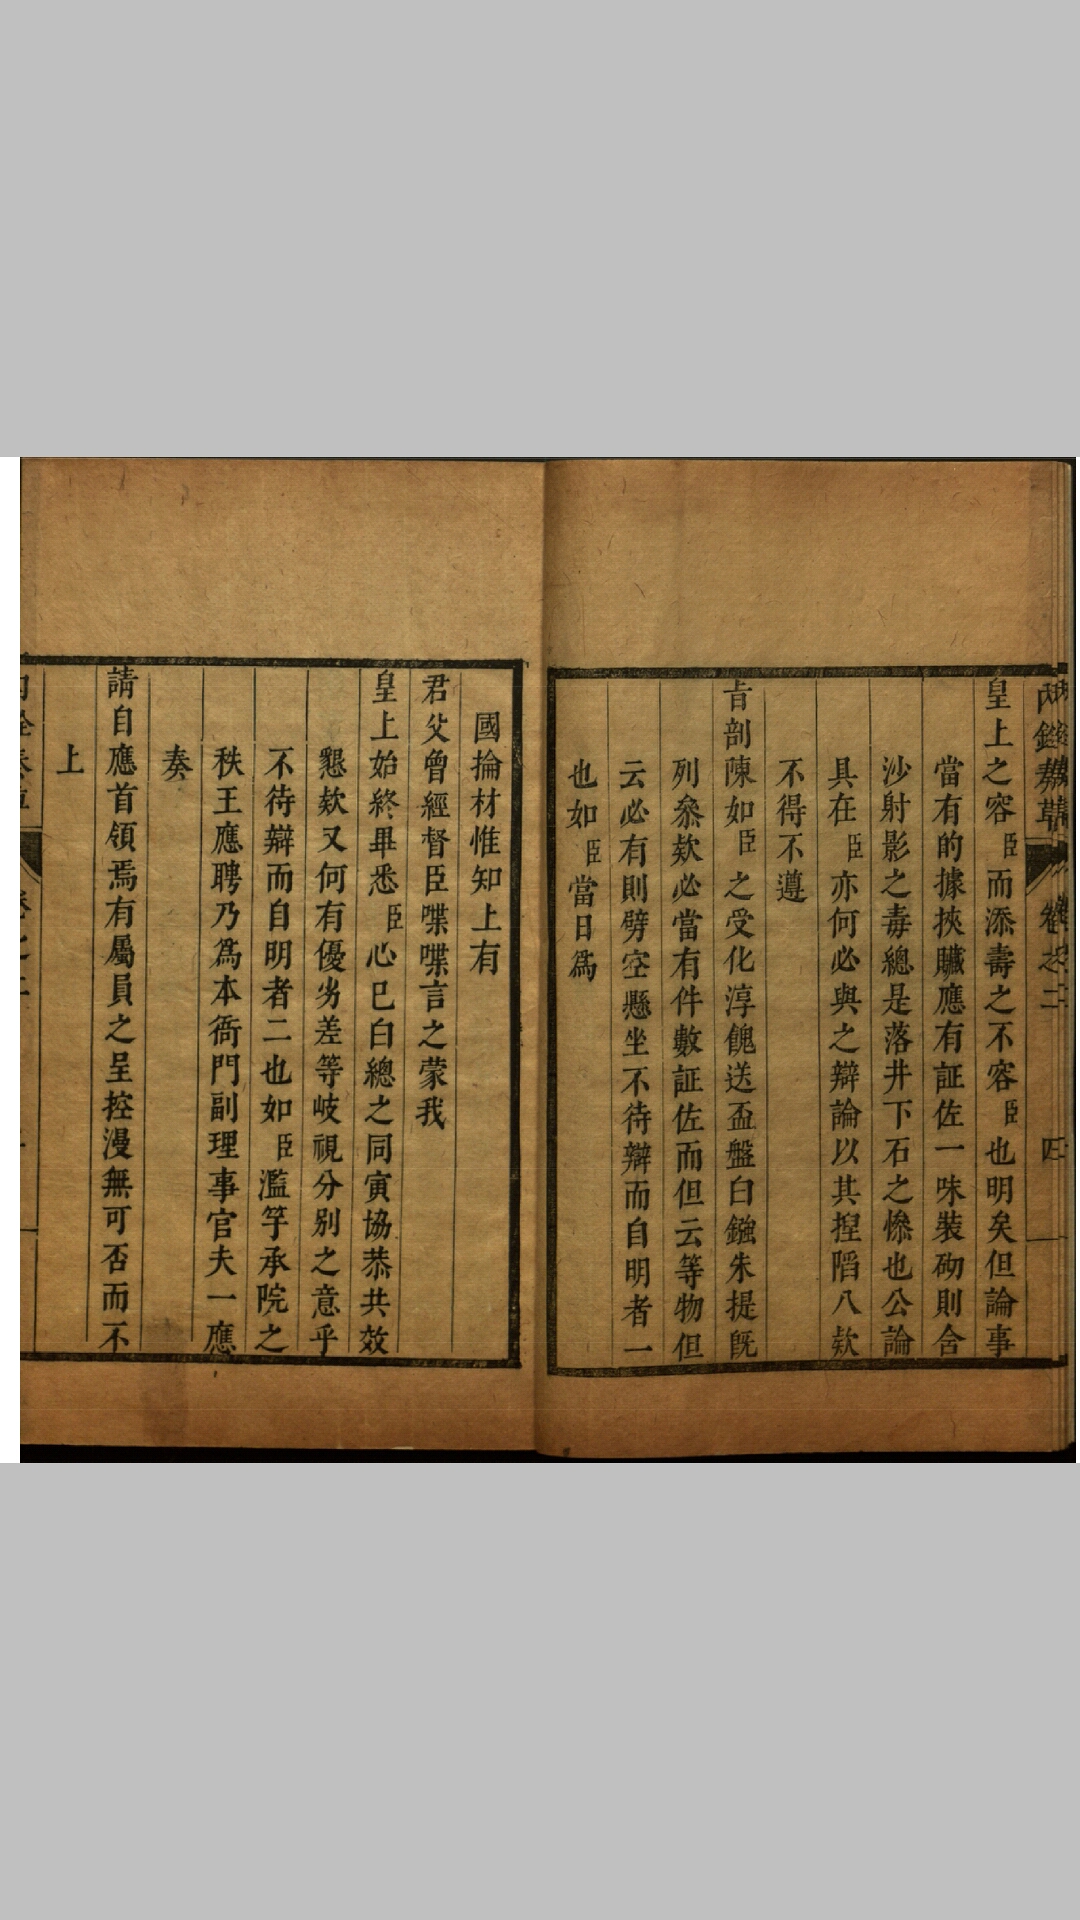 皇上之容臣而添壽之不容臣也明矣但論事
當有的據挾贓應有証佐一味裝砌則含
沙射影之毒總是落井下石之慘也公論
具在臣亦何必與之辯論以其揑陷八欵
不得不遵
旨剖陳如臣之受化淳餽送盃盤白鏹朱提旣
列叅欵必當有件數証佐而但云等物但
云必有則劈空懸坐不待辯而自明者一
也如臣當日爲
國掄材惟知上有
君父曾經督臣喋喋言之蒙我
皇上始終畢悉臣心已白總之同寅協恭共效
懇欵又何有優劣差等岐視分別之意乎
不待辯而自明者二也如臣濫竽承院之
秩王應聘乃爲本衙門副理事官夫一應
奏
請自應首領焉有屬員之呈控漫無可否而不
上